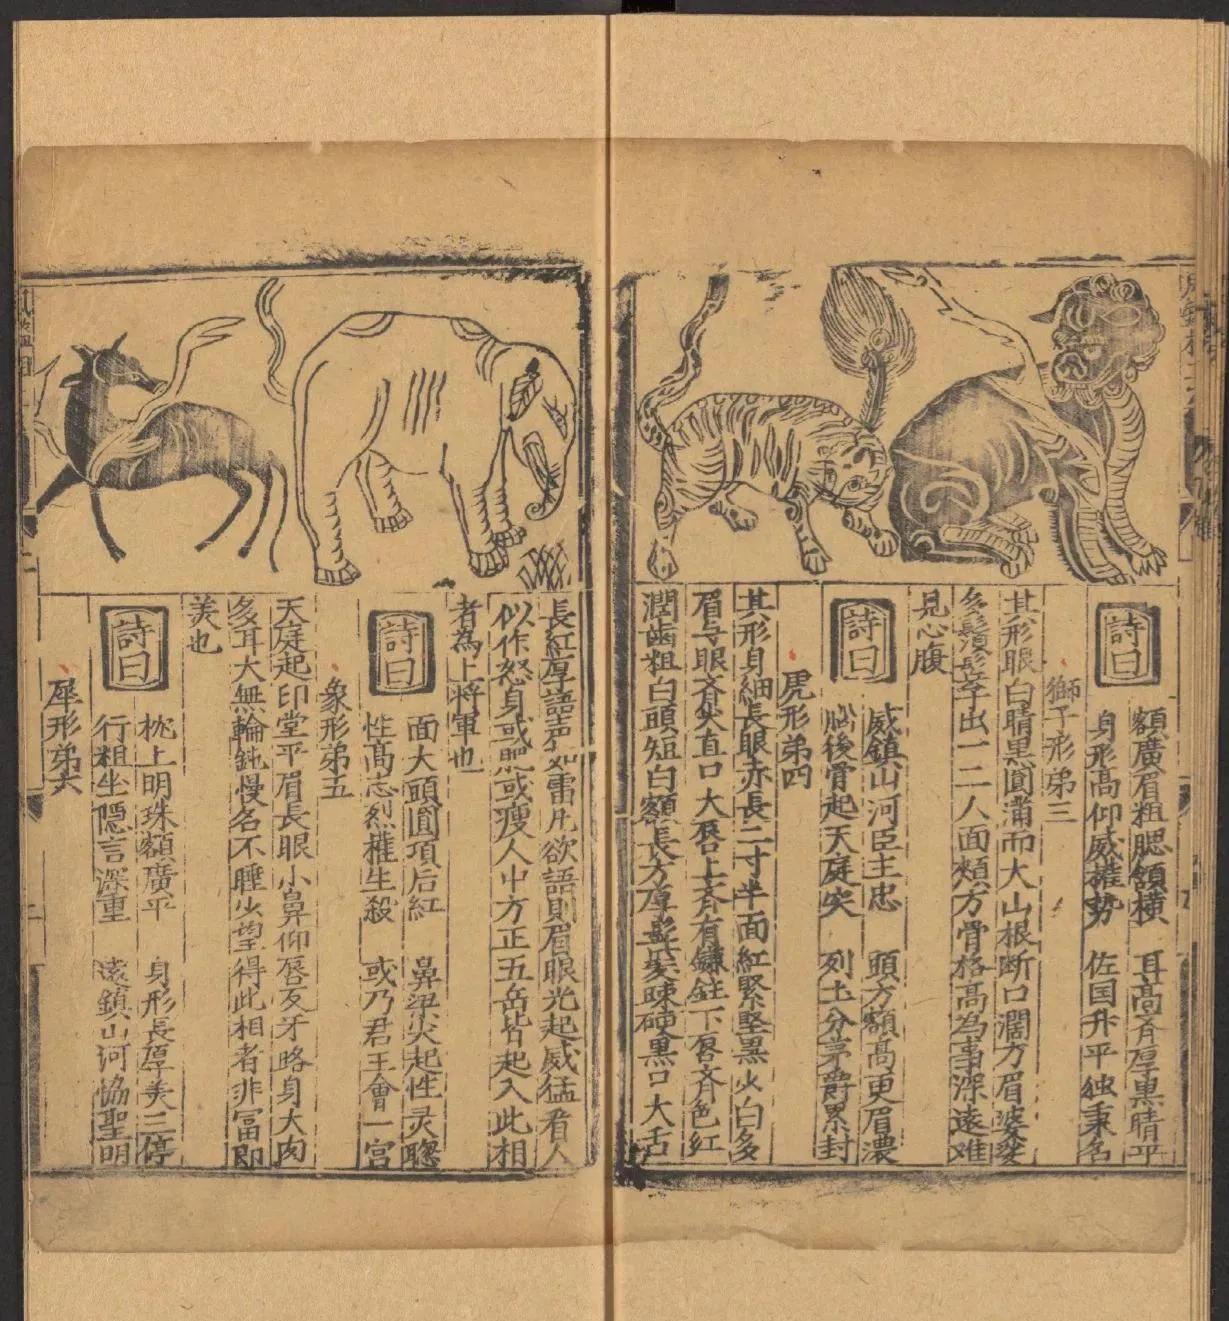 詩曰
額廣眉粗腮頷横 耳高齐厚黒睛平
身形高仰威權势 佐国升平独秉名
獅子形弟三
其形眼白睛黒圓滿而大山根断口濶方眉婆娑
多鬚髪孛出一二人面頰方骨格高為事深遠难
見心腹
詩曰
威鎮山河臣主忠 頭方額高更眉濃
腦後骨起天庭突 列土分茅爵累封
虎形弟四
其形身細長眼赤長二寸半面紅緊堅黒火白多
眉与眼斉尖直口大唇上斉有鐮鉒下唇斉色紅
潤齒粗白頭短白額長方厚髭髮踈硬黒口大舌
長紅厚語声如雷凡欲語則眉眼光起威猛看人
似作怒身或肥或瘦人中方正五岳皆起入此相
者為上将軍也
詩曰
面大頭圓項后紅 鼻梁尖起性灵聰
性高志烈權生殺 或乃君王會一宫
象形弟五
天庭起印堂平眉長眼小鼻仰唇反牙略身大肉
多耳大無輪鈍慢名不睡少望得此相者非冨即
美也
詩曰
枕上明珠額廣平 身形長厚美三停
行粗坐隠言深重 遠鎮山河恊聖明
犀形弟六